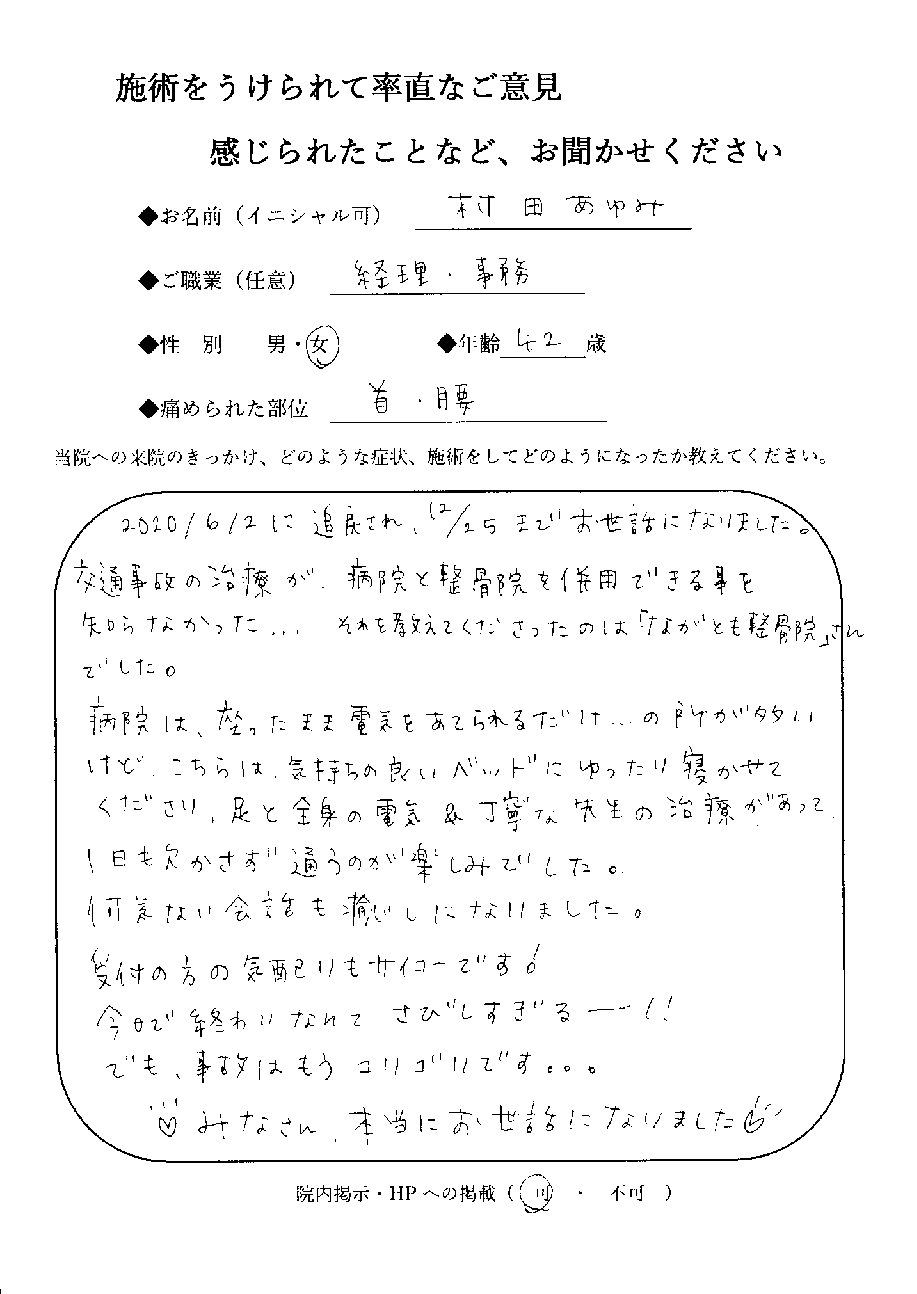 施術をうけられて率直なご意見
感じられたことなど、お聞かせください
◆お名前（イニシャル可） 村田あゆみ
◆ご職業（任意） 経理・事務
◆性 別 男・女 ◆年齢 42 歳
◆痛められた部位 首・腰
当院への来院のきっかけ、どのような症状、施術をしてどのようになったか教えてください。
2020/6/2に追突され、12/25までお世話になりました。
交通事故の治療が、病院と整骨院を併用できる事を
知らなかった... それを教えてくださったのは「ながとも整骨院」さん
でした。
病院は、座ったまま電気をあてられるだけ...の所が多い
けど、こちらは、気持ちの良いベッドにゆったり寝かせて
くださり、足と全身の電気&丁寧な先生の治療があって、
1日も欠かさず通うのが楽しみでした。
何気ない会話も癒しになりました。
受付の方の気配りもサイコーです!
今日で終わりなんて さびしすぎるー!!
でも、事故はもうコリゴリです。。。
♡みなさん、本当にお世話になりました
院内掲示・HPへの掲載（ 可 ・ 不可 ）